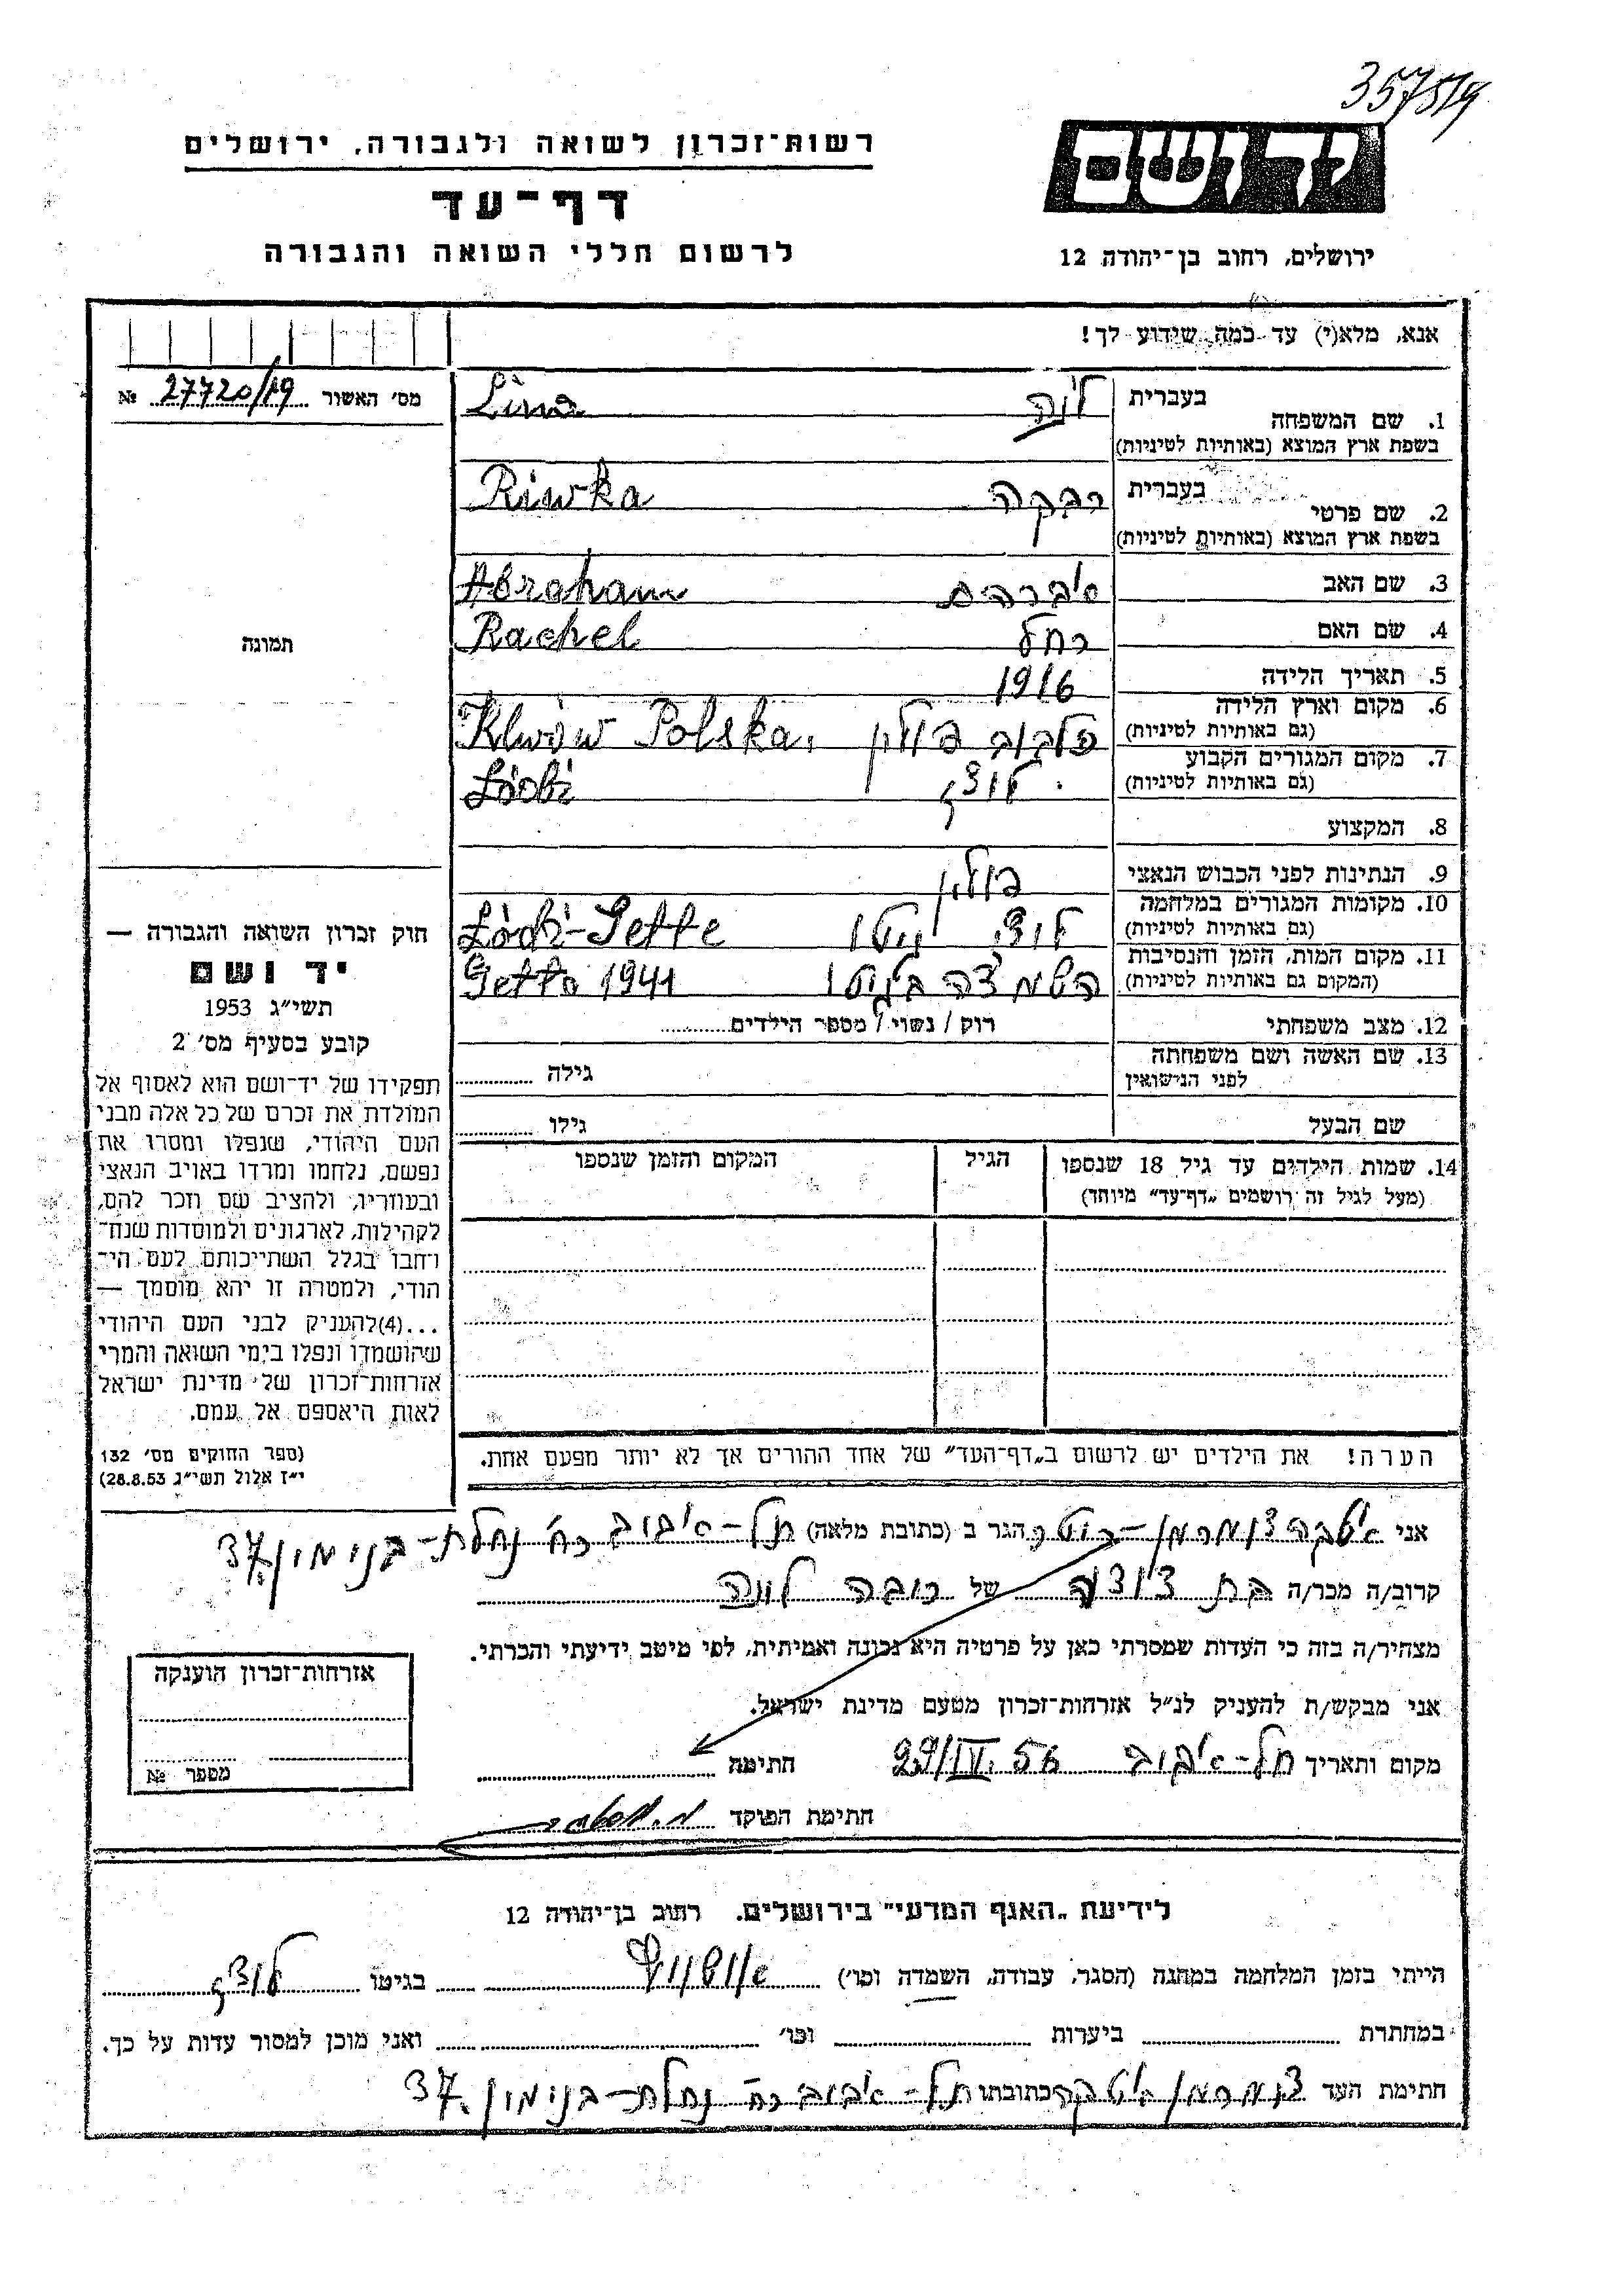 357519
רשות־זכרון לשואה ולגבורה, ירושלים
דף־עד
לרשום חללי השואה והגבורה
יד ושם
ירושלים, רחוב בן־יהודה 12
אנא, מלא(י) עד כמה שידוע לך!
מס׳ האשור 27720/19 №
תמונה
1. שם המשפחה בעברית לינה
בשפת ארץ המוצא (באותיות לטיניות) Lina
2. שם פרטי בעברית רבקה
בשפת ארץ המוצא (באותיות לטיניות) Riwka
3. שם האב אברהם Abraham
4. שם האם רחל Rachel
5. תאריך הלידה 1916
6. מקום וארץ הלידה
(גם באותיות לטיניות) קלבוב פולין Klwów Polska.
7. מקום המגורים הקבוע
(גם באותיות לטיניות) לודז Łódź
8. המקצוע
9. הנתינות לפני הכבוש הנאצי פולין
10. מקומות המגורים במלחמה
(גם באותיות לטיניות) גיטו Łódź-Gette
11. מקום המות, הזמן והנסיבות
(המקום גם באותיות לטיניות) בגיטו Getto 1941
12. מצב משפחתי רוק / נשוי / מספר הילדים
13. שם האשה ושם משפחתה
לפני הנישואין גילה
שם הבעל גילו
14. שמות הילדים עד גיל 18 שנספו הגיל המקום והזמן שנספו
(מעל לגיל זה רושמים „דף־עד״ מיוחד)
הערה! את הילדים יש לרשום ב„דף־העד״ של אחד ההורים אך לא יותר מפעם אחת.
חוק זכרון השואה והגבורה —
יד ושם
תשי״ג 1953
קובע בסעיף מס׳ 2
תפקידו של יד־ושם הוא לאסוף אל
המולדת את זכרם של כל אלה מבני
העם היהודי, שנפלו ומסרו את
נפשם, נלחמו ומרדו באויב הנאצי
ובעוזריו, ולהציב שם וזכר להם,
לקהילות, לארגונים ולמוסדות שנח־
רחבו בגלל השתייכותם לעם הי־
הודי, ולמטרה זו יהא מוסמך —
...(4)להעניק לבני העם היהודי
שהושמדו ונפלו בימי השואה והמרי
אזרחות־זכרון של מדינת ישראל
לאות היאספם אל עמם.
(ספר החוקים מס׳ 132
י״ז אלול תשי״ג 28.8.53)
אני הגר ב (כתובת מלאה) תל-אביב רח׳ נחלת-בנימין 37.
קרוב/ה מכר/ה בת דודה של רבקה לינה
מצהיר/ה בזה כי העדות שמסרתי כאן על פרטיה היא נכונה ואמיתית, לפי מיטב ידיעתי והכרתי.
אני מבקש/ת להעניק לנ״ל אזרחות־זכרון מטעם מדינת ישראל.
מקום ותאריך תל-אביב 29/IV. 56 חתימה
חתימת הפוקד
אזרחות־זכרון הוענקה
מספר №
לידיעת „האגף המדעי״ בירושלים, רחוב בן־יהודה 12
הייתי בזמן המלחמה במחנה (הסגר, עבודה, השמדה וכו׳) אושויץ בגיטו לודז
במחתרת ביערות וכו׳ ואני מוכן למסור עדות על כך.
חתימת העד כתובתו תל-אביב רח׳ נחלת-בנימין 37.